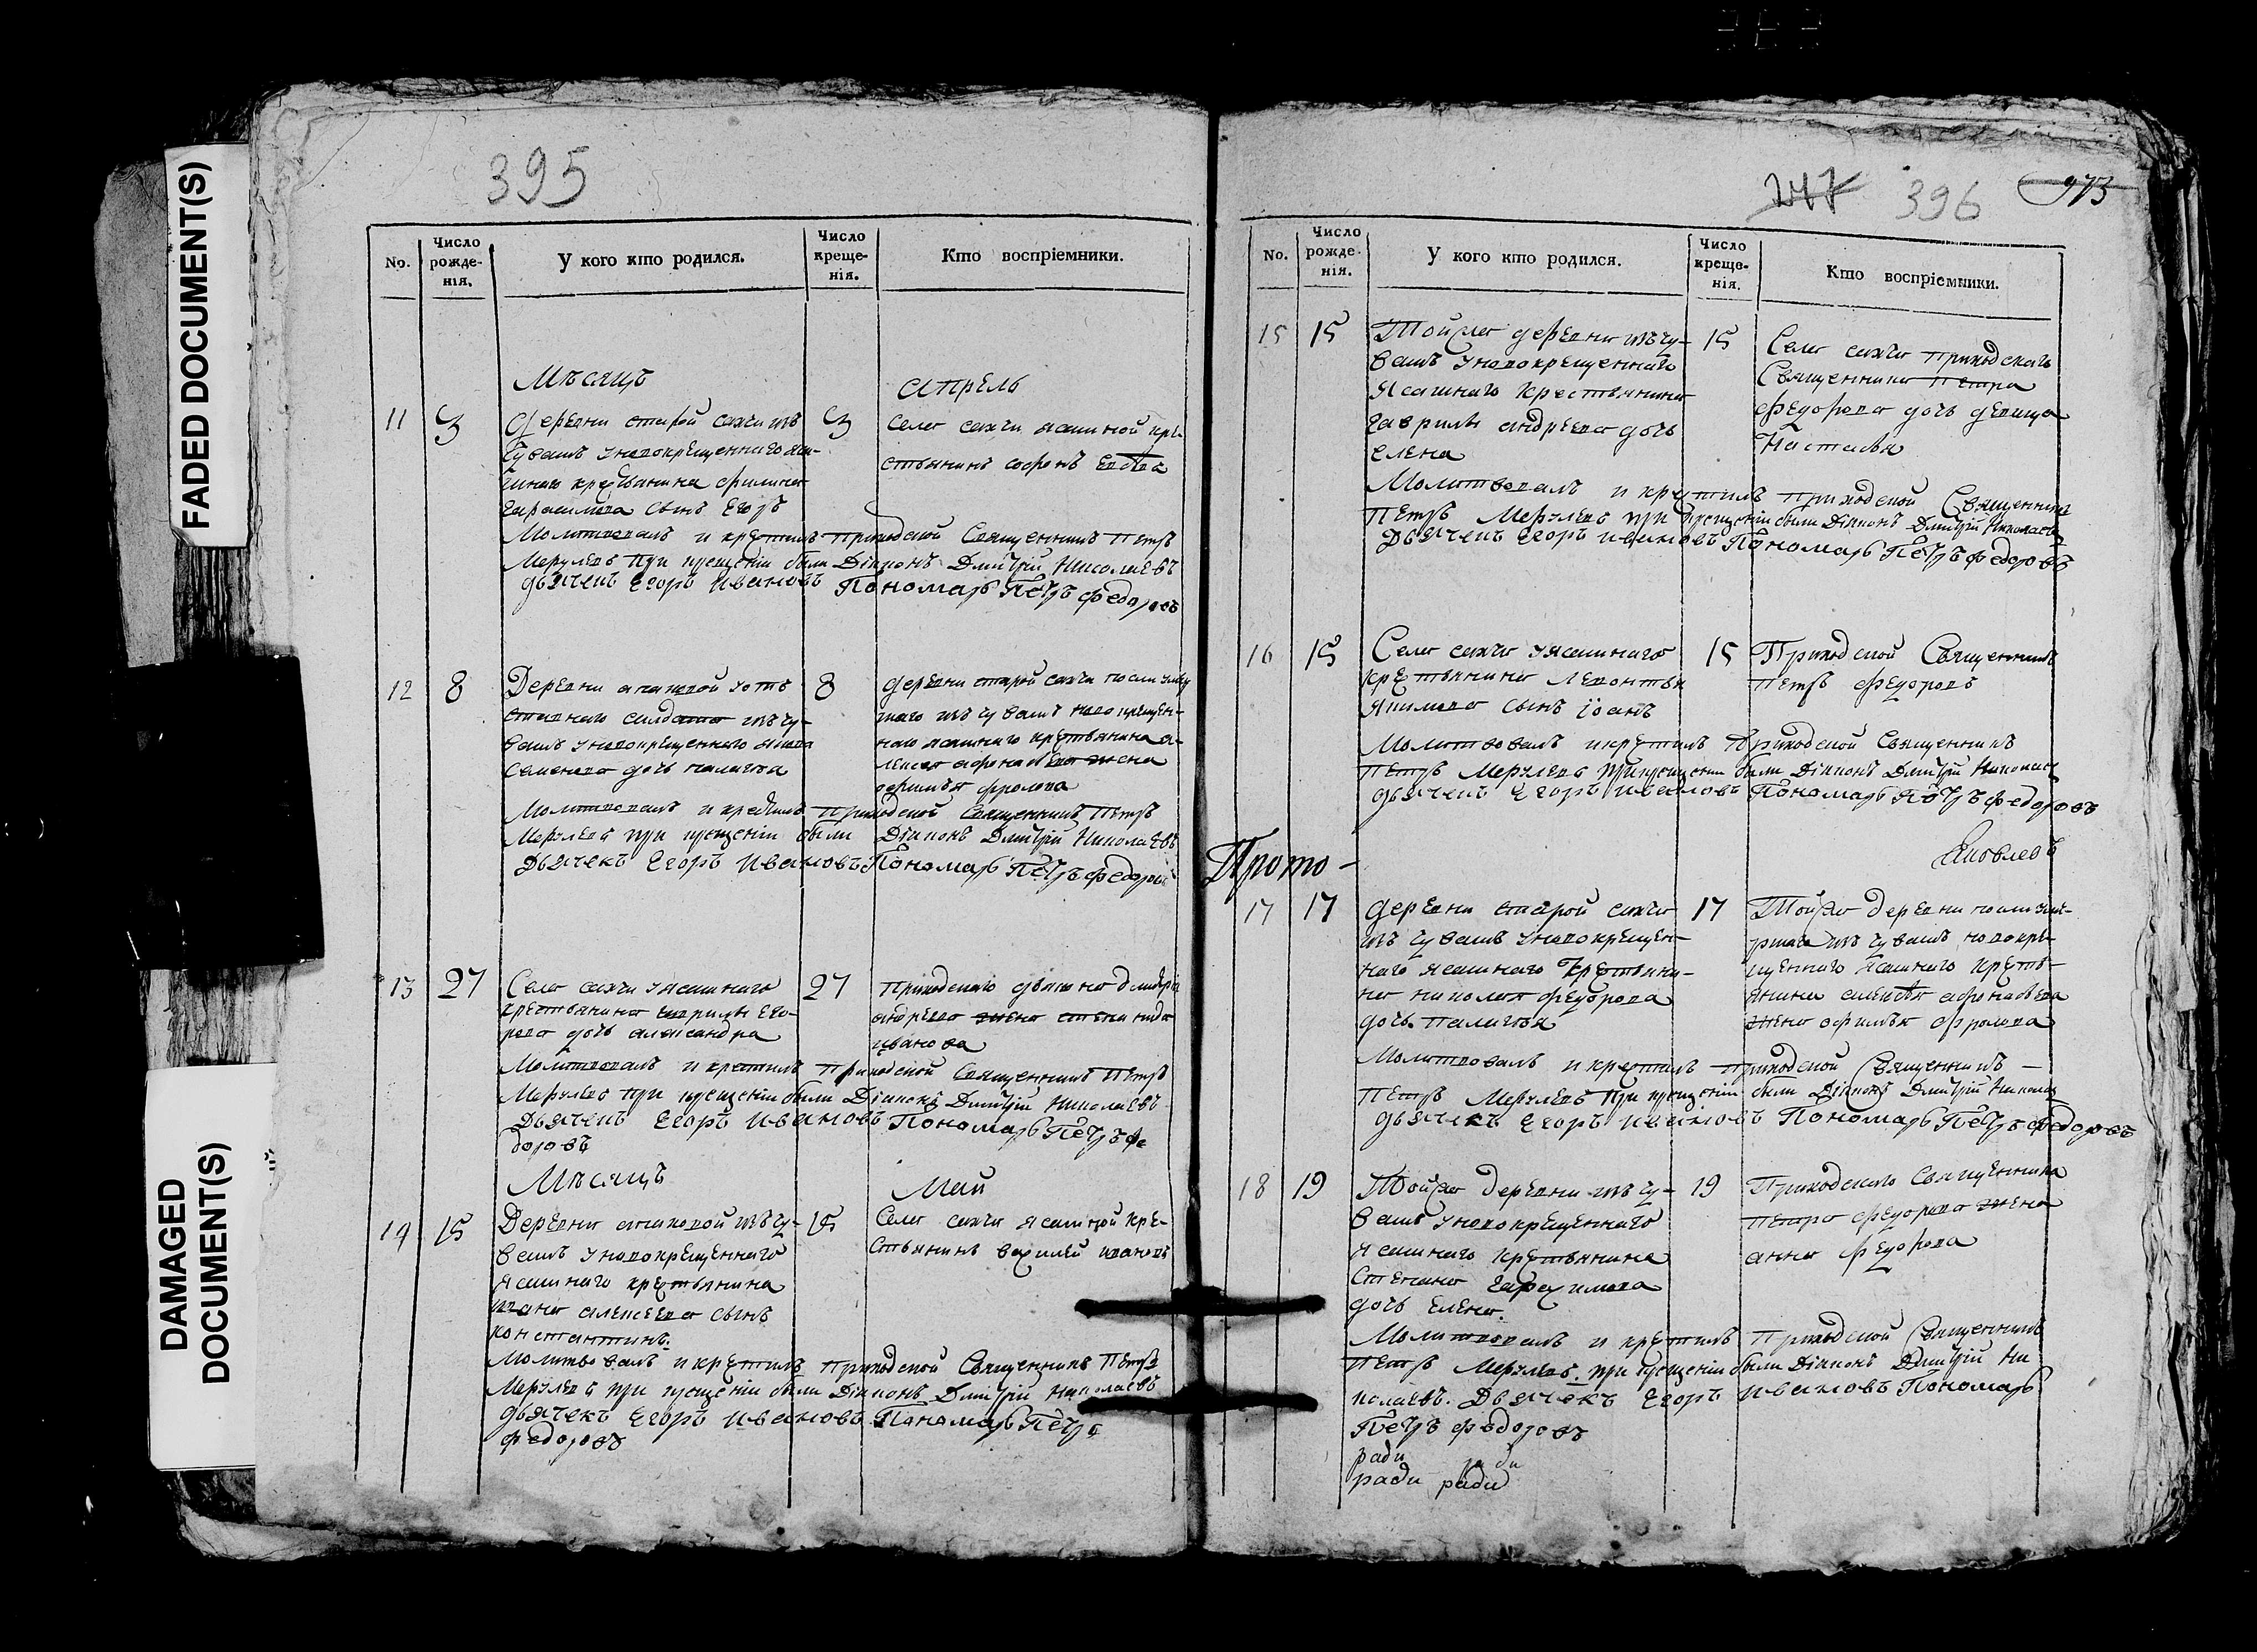 FADED DOCUMENT(S)
DAMAGED
DOCUMENT(S)
395
No.
Число рожденія.
У кого кто родился.
Число крещенія.
Кто воспріемники.
Мѣсяцъ
Апрель
11
3
Деревни старой сахчи изъ
чувашъ у новокрещеннаго яса-
шнаго крестьянина филипа
гарасимова сынъ Егоръ
3
Села сахчи ясашной кре-
стьянинъ софонъ
Молитвовалъ и крестилъ приходской Священникъ Петръ
Меркулевъ при крещеніи были Діаконъ Дмитрій Николаевъ
дьячекъ Егоръ Ивановъ Пономарь Петръ Федоровъ
12
8
Деревни
ставнаго салдата изъ чу-
вашъ у новокрещеннаго якова
Семенова дочь палагѣа
8
деревни старой сахчи
изъ чувашъ новокрещен-
наго ясашнаго крестьянина а-
лексея афонасьева жена
офимья фролова
Молитвовалъ и крестилъ приходской Священникъ Петръ
Меркулевъ при крещеніи были Діаконъ Дмитрій Николаевъ
Дьячекъ Егоръ Ивановъ Пономарь Петръ Федоровъ
13
27
Села сахчи у ясашнаго
крестьянина гаврилы его-
рова дочь александра
27
Приходскаго дьякона дмитрія
андрева жена степанида
иванова
Молитвовалъ и крестилъ приходской Священникъ Петръ
Меркулевъ при крещеніи были Діаконъ Дмитрій Николаевъ
Дьячекъ Егоръ Ивановъ Пономарь Петръ Фе
доровъ
Мѣсяцъ
Маи
14
15
Деревни изъ чу-
вашъ у новокрещеннаго
ясашнаго крестьянина
ивана алексеева сынъ
константинъ.
15
Села сахчи ясашной кре-
стьянинъ василей ивановъ
Молитвовалъ и крестилъ приходской Священникъ Петръ
Меркулевъ при крещеніи были Діаконъ Дмитрій Николаевъ
дьячекъ Егоръ Ивановъ Пономарь Петръ
Федоровъ
247
396
973
No.
Число рожденія.
У кого кто родился.
Число крещенія.
Кто воспріемники.
15
15
Тойже деревни изъ чу-
вашъ у новокрещеннаго
ясашнаго крестьянина
гаврилы андреева дочь
елена
15
Села сахчи приходскаго
Священника Петра
федорова дочь девица
Настасья
Молитвовалъ и крестилъ приходской Священникъ
Петръ Меркулевъ при крещеніи были Діаконъ Дмитрій Николаевъ
Дьячекъ Егоръ Ивановъ Пономарь Петръ Федоровъ
16
15
Села сахчи у ясашнаго
крестьянина леонтья
якимова сынъ іоанъ
15
Приходской Священникъ
Петръ федоровъ
Молитвовалъ и крестилъ Приходской Священникъ
Петръ Меркулевъ при крещеніи были Діаконъ Дмитрій Николаевъ
дьячекъ Егоръ Ивановъ Пономарь Петръ Федоровъ
Яковлевъ
Прото-
17
17
деревни старой сахчи
изъ чувашъ у новокрещен-
наго ясашнаго крестьяни-
на николая федорова
дочь палагѣя
17
Тойже деревни
изъ чувашъ новокре-
щеннаго ясашнаго кресть-
янина алексѣя афонасьева
жена офимья фролова
Молитвовалъ и крестилъ приходской Священникъ
Петръ Меркулевъ при крещеніи были Діаконъ Дмитрій Николаевъ
дьячекъ Егоръ Ивановъ Пономарь Петръ Федоровъ
18
19
Тойже деревни изъ чу-
вашъ у новокрещеннаго
ясашнаго крестьянина
степана гарасимова
дочь елена.
19
Приходскаго Священника
петра федорова жена
анна федорова
Молитвовалъ и крестилъ Приходской Священникъ
Петръ Меркулевъ. при крещеніи были Діаконъ Дмитрій Ни
колаевъ. Дьячекъ Егоръ Ивановъ Пономарь
Петръ Федоровъ
ради ради
ради ради